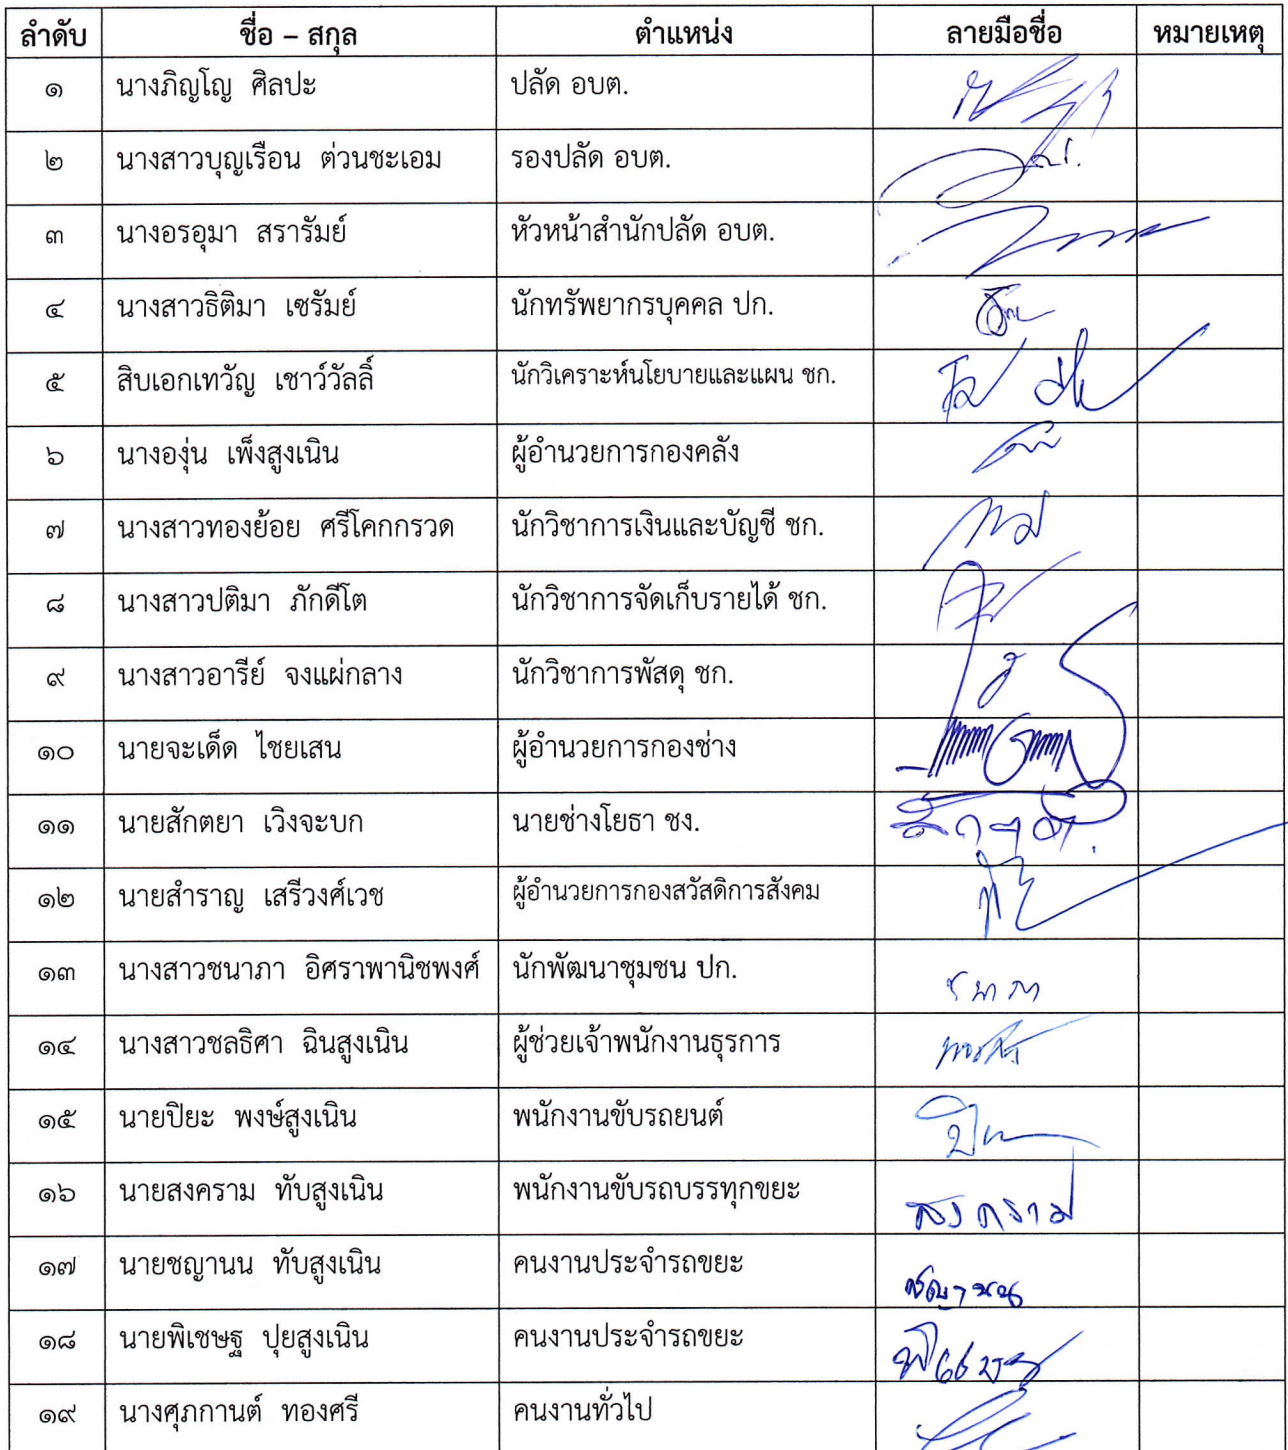 ลำดับ ชื่อ – สกุล ตำแหน่ง ลายมือชื่อ หมายเหตุ
๑ นางภิญโญ ศิลปะ ปลัด อบต.
๒ นางสาวบุญเรือน ต่วนชะเอม รองปลัด อบต.
๓ นางอรอุมา สรารัมย์ หัวหน้าสำนักปลัด อบต.
๔ นางสาวธิติมา เซรัมย์ นักทรัพยากรบุคคล ปก.
๕ สิบเอกเทวัญ เชาว์วัลลิ์ นักวิเคราะห์นโยบายและแผน ชก.
๖ นางองุ่น เพ็งสูงเนิน ผู้อำนวยการกองคลัง
๗ นางสาวทองย้อย ศรีโคกกรวด นักวิชาการเงินและบัญชี ชก.
๘ นางสาวปติมา ภักดีโต นักวิชาการจัดเก็บรายได้ ชก.
๙ นางสาวอารีย์ จงแผ่กลาง นักวิชาการพัสดุ ชก.
๑๐ นายจะเด็ด ไชยเสน ผู้อำนวยการกองช่าง
๑๑ นายสักตยา เวิงจะบก นายช่างโยธา ชง.
๑๒ นายสำราญ เสรีวงศ์เวช ผู้อำนวยการกองสวัสดิการสังคม
๑๓ นางสาวชนาภา อิศราพานิชพงศ์ นักพัฒนาชุมชน ปก. ชนาภา
๑๔ นางสาวชลธิศา ฉินสูงเนิน ผู้ช่วยเจ้าพนักงานธุรการ
๑๕ นายปิยะ พงษ์สูงเนิน พนักงานขับรถยนต์
๑๖ นายสงคราม ทับสูงเนิน พนักงานขับรถบรรทุกขยะ สงคราม
๑๗ นายชญานน ทับสูงเนิน คนงานประจำรถขยะ ชญานน
๑๘ นายพิเชษฐ ปุยสูงเนิน คนงานประจำรถขยะ พิเชษฐ
๑๙ นางศุภกานต์ ทองศรี คนงานทั่วไป